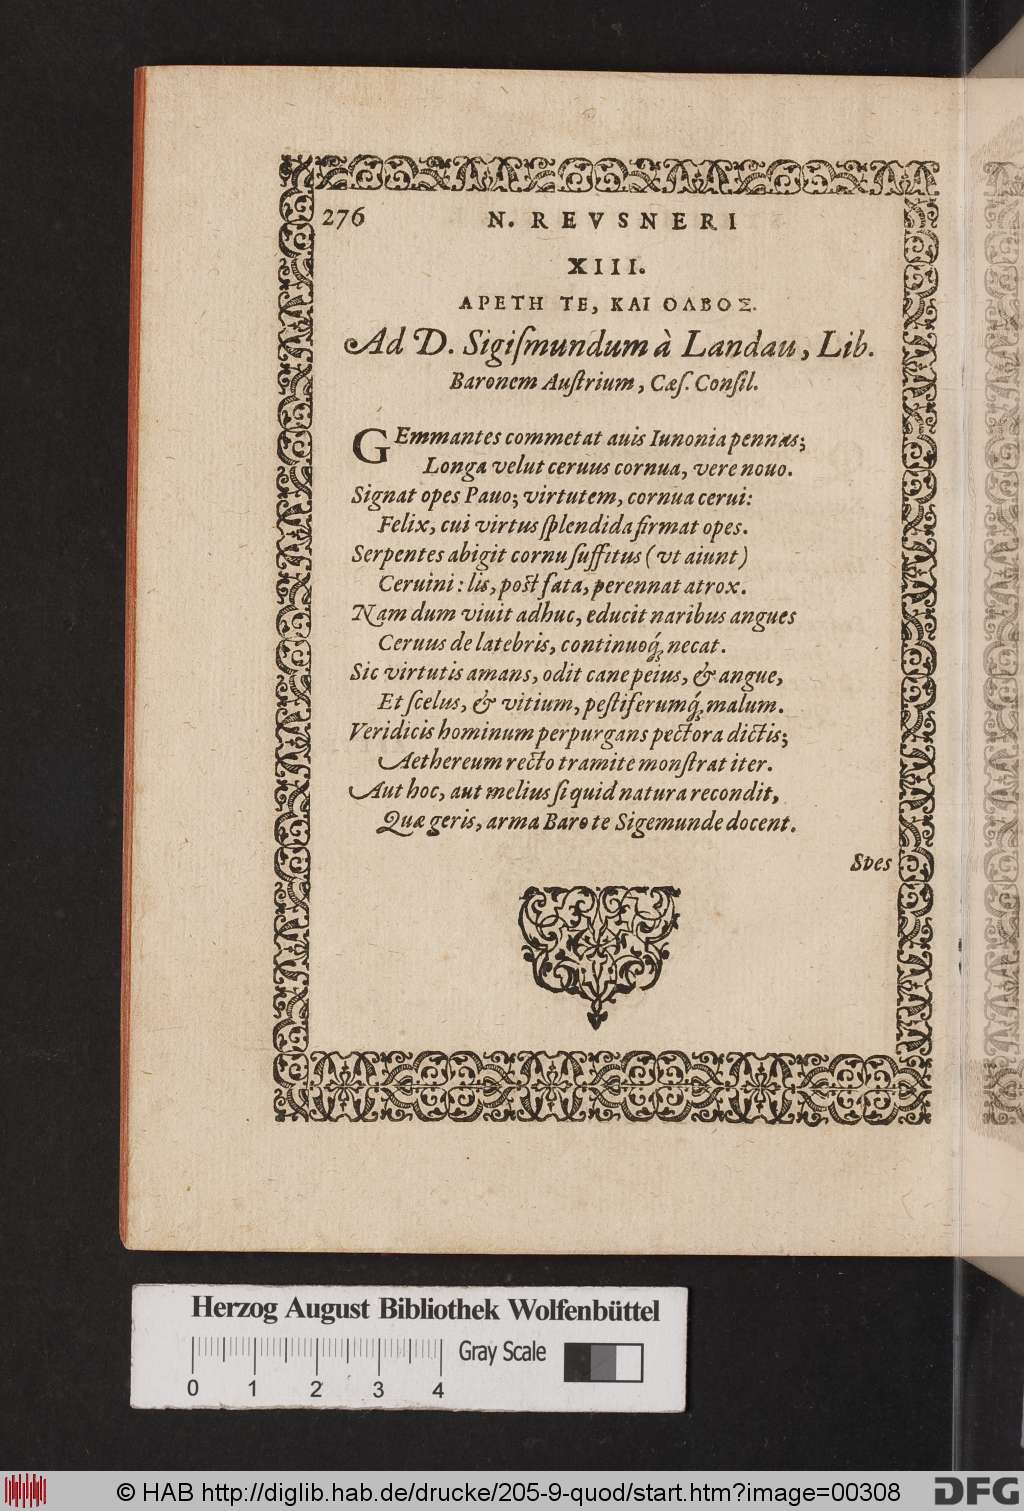 276 N. REVSNERI
XIII.
ΑΡΕΤΗ ΤΕ, ΚΑΙ ΟΛΒΟΣ.
Ad D. Sigiſmundum à Landau, Lib.
Baronem Auſtrium, Cæſ. Conſil.
GEmmantes commetat auis Iunonia pennas;
Longa velut ceruus cornua, vere nouo.
Signat opes Pauo; virtutem, cornua cerui:
Felix, cui virtus ſplendida firmat opes.
Serpentes abigit cornu ſuffitus (vt aiunt)
Ceruini: lis, poſt fata, perennat atrox.
Nam dum viuit adhuc, educit naribus angues
Ceruus de latebris, continuoq́; necat.
Sic virtutis amans, odit cane peius, & angue,
Et ſcelus, & vitium, peſtiferumq́; malum.
Veridicis hominum perpurgans pectora dictis;
Aethereum recto tramite monſtrat iter.
Aut hoc, aut melius ſi quid natura recondit,
Quæ geris, arma Baro te Sigemunde docent.
Spes
Herzog August Bibliothek Wolfenbüttel
Gray Scale
0 1 2 3 4
© HAB http://diglib.hab.de/drucke/205-9-quod/start.htm?image=00308
DFG